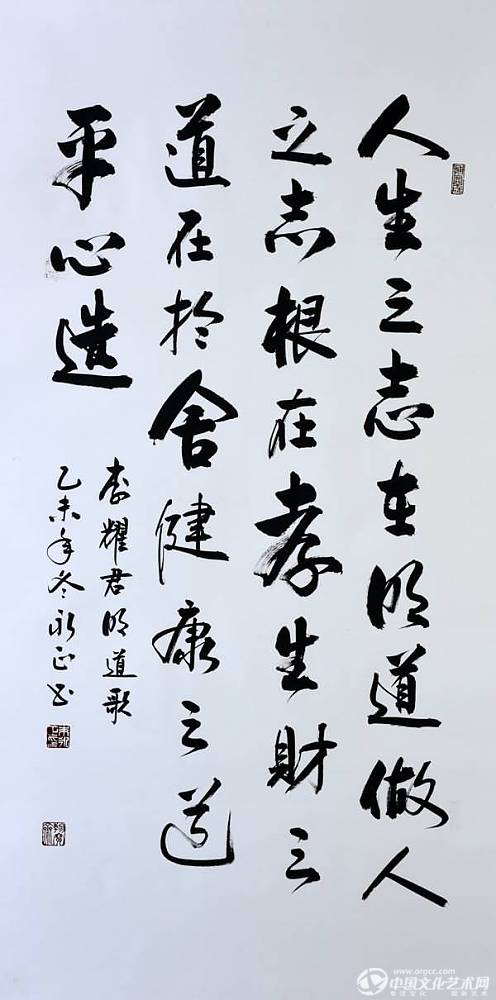 人生之志在明道做人
之志根在孝生財之
道在於舍健康之道
平心造
李耀君明道歌
乙未年冬永正书
www.orgcc.com
中国文化艺术网